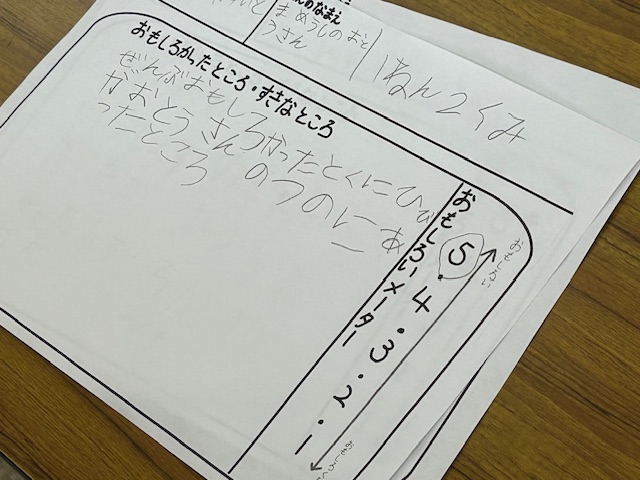 んのなまえ
まめうしのおと
うさん
1ねん2くみ
おもしろかったところ・すきなところ
ぜんぶおもしろかったとくにひび
がおとうさんのつのにあ
ったところ
おもしろいメーター
5・4・3・2・1
おもしろい